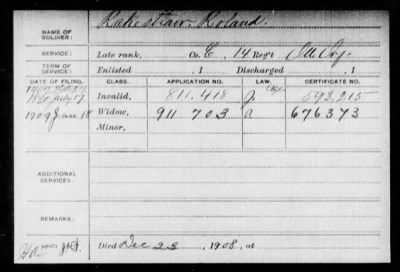 NAME OF SOLDIER: Rakestraw Roland.
SERVICE: Late rank, Co. E, 14 Reg't Ill Cav.
TERM OF SERVICE: Enlisted , 1 Discharged , 1
DATE OF FILING. CLASS. APPLICATION NO. LAW. CERTIFICATE NO.
1890 July 17 Invalid, 811.418 J. 593,215
1909 Jan 18 Widow, 911 703 a 676373
Minor,
ADDITIONAL SERVICES:
REMARKS:
Died Dec 23, 1908, at